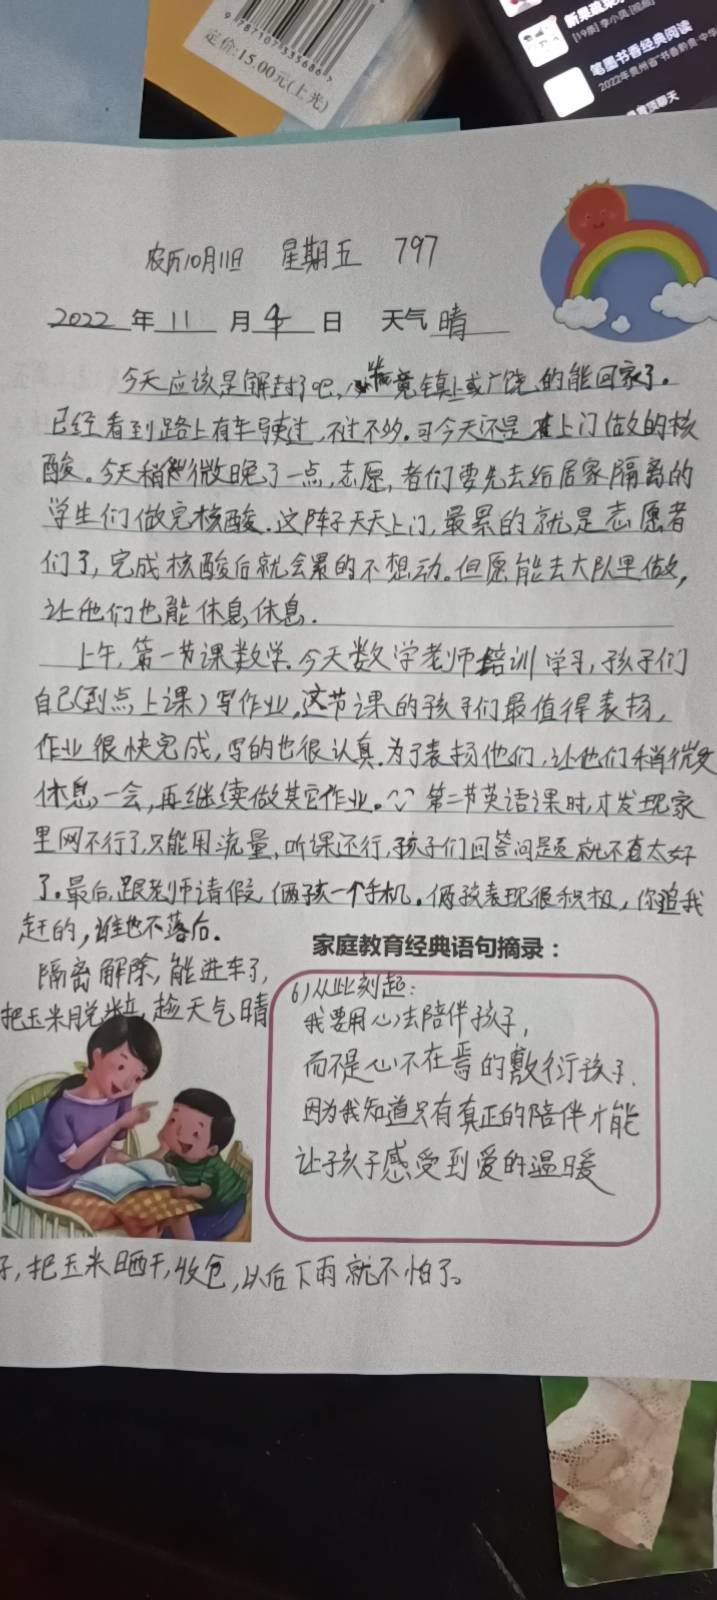 9787107335686
定价:15.00元(上光)
[19集] 李小真 [视频]
笔墨书香经典阅读
农历10月11日 星期五 797
2022年11月4日 天气晴
今天应该是解封了吧,毕竟镇上或广饶的能回家了。
已经看到路上有车驶过,不过不多。可今天还是上门做的核
酸。今天稍微晚了一点,志愿者们要先去给居家隔离的
学生们做完核酸。这阵子天天上门,最累的就是志愿者
们了,完成核酸后就会累的不想动。但愿能去大队里做,
让他们也能休息休息。
上午,第一节课数学。今天数学老师培训学习,孩子们
自己(到点上课)写作业,这节课的孩子们最值得表扬,
作业很快完成,写的也很认真。为了表扬他们,让他们稍微
休息一会,再继续做其它作业。^^第二节英语课时,才发现家
里网不行了,只能用流量,听课还行,孩子们回答问题就不有太好
了。最后,跟老师请假,俩孩一个手机。俩孩表现很积极,你追我
赶的,谁也不落后。
家庭教育经典语句摘录:
隔离解除,能进车了,
把玉米脱粒,趁天气晴
6)从此刻起:
我要用心去陪伴孩子,
而不是心不在焉的敷衍孩子.
因为我知道只有真正的陪伴才能
让孩子感受到爱的温暖
好,把玉米晒干,收仓,以后下雨就不怕了。